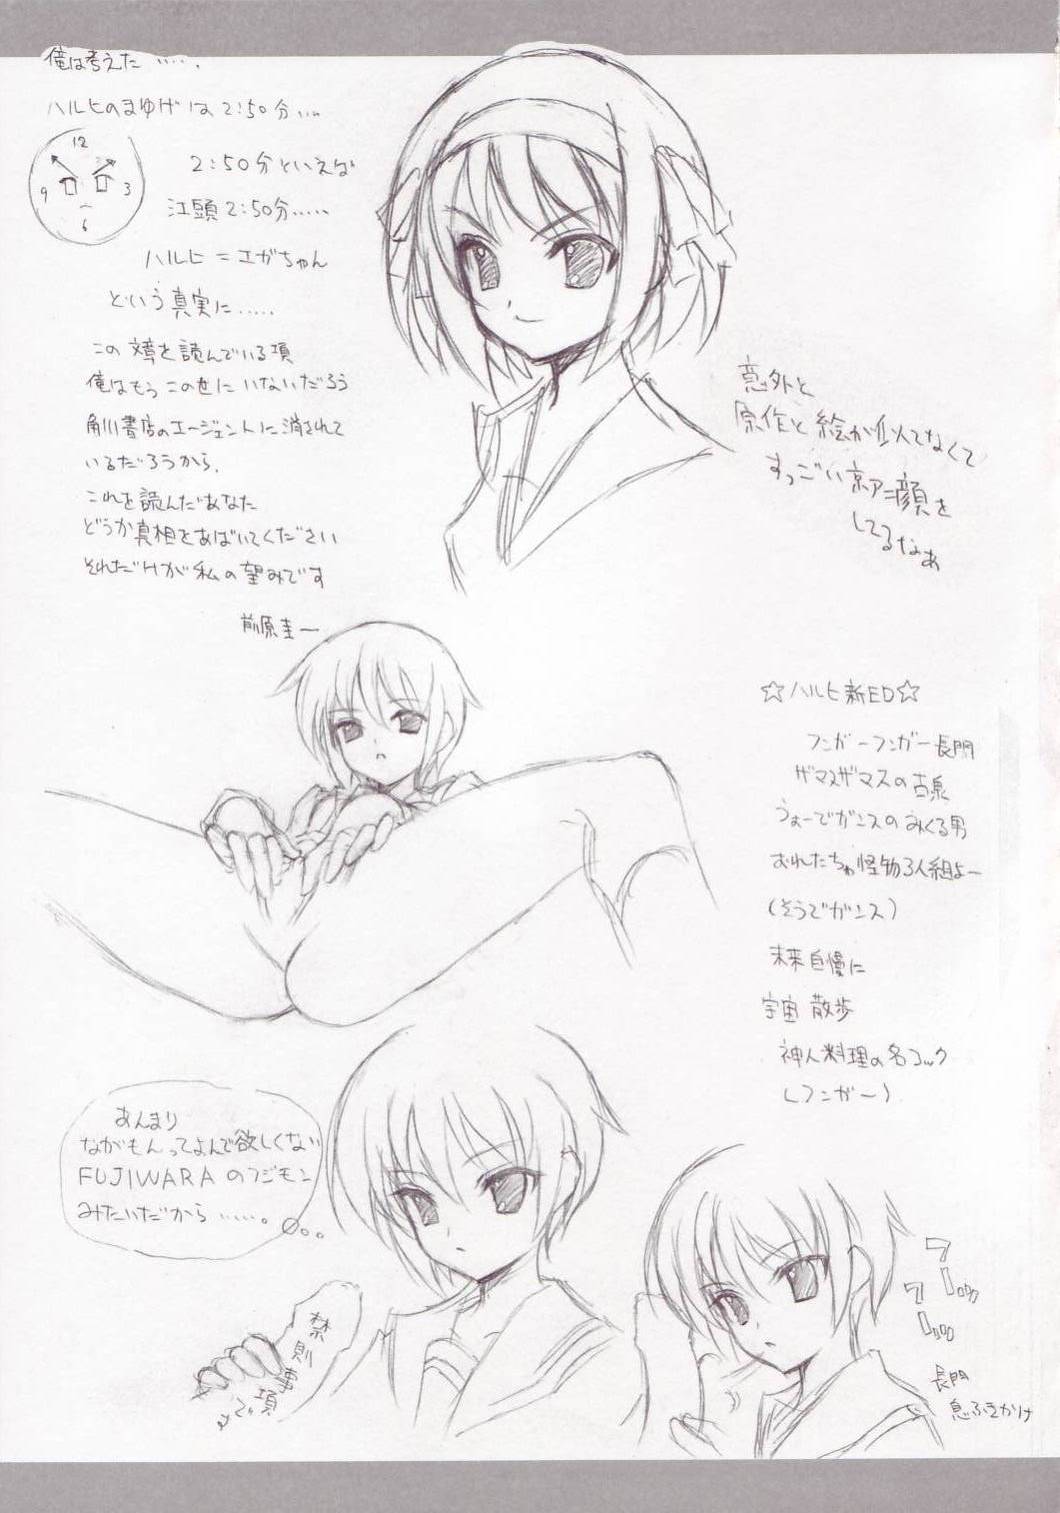 俺は考えた‥‥.
ハルヒのまゆげは2:50分‥‥
12
9
3
6
2:50分といえば
江頭2:50分‥‥‥
ハルヒ=エガちゃん
という真実に‥‥‥
この文章を読んでいる項
俺はもうこの世にいないだろう
角川書店のエージェントに消されて
いるだろうから.
これを読んだあなた
どうか真相をあばいてください
それだけが私の望みです
前原圭一
意外と
原作と絵が似てなくて
すっごい京アニ顔を
してるなぁ
☆ハルヒ新ED☆
フンガーフンガー長門
ザマスザマスの古泉
うぉーでガンスのみくる男
おれたちゃ怪物3人組よー
(そうでガンス)
未来自慢に
宇宙散歩
神人料理の名コック
(フンガー)
あんまり
ながもんってよんで欲しくない
FUJIWARAのフジモン
みたいだから‥‥‥。
禁則事項
です
フーッ
フーッ
長門
息ふきかけ